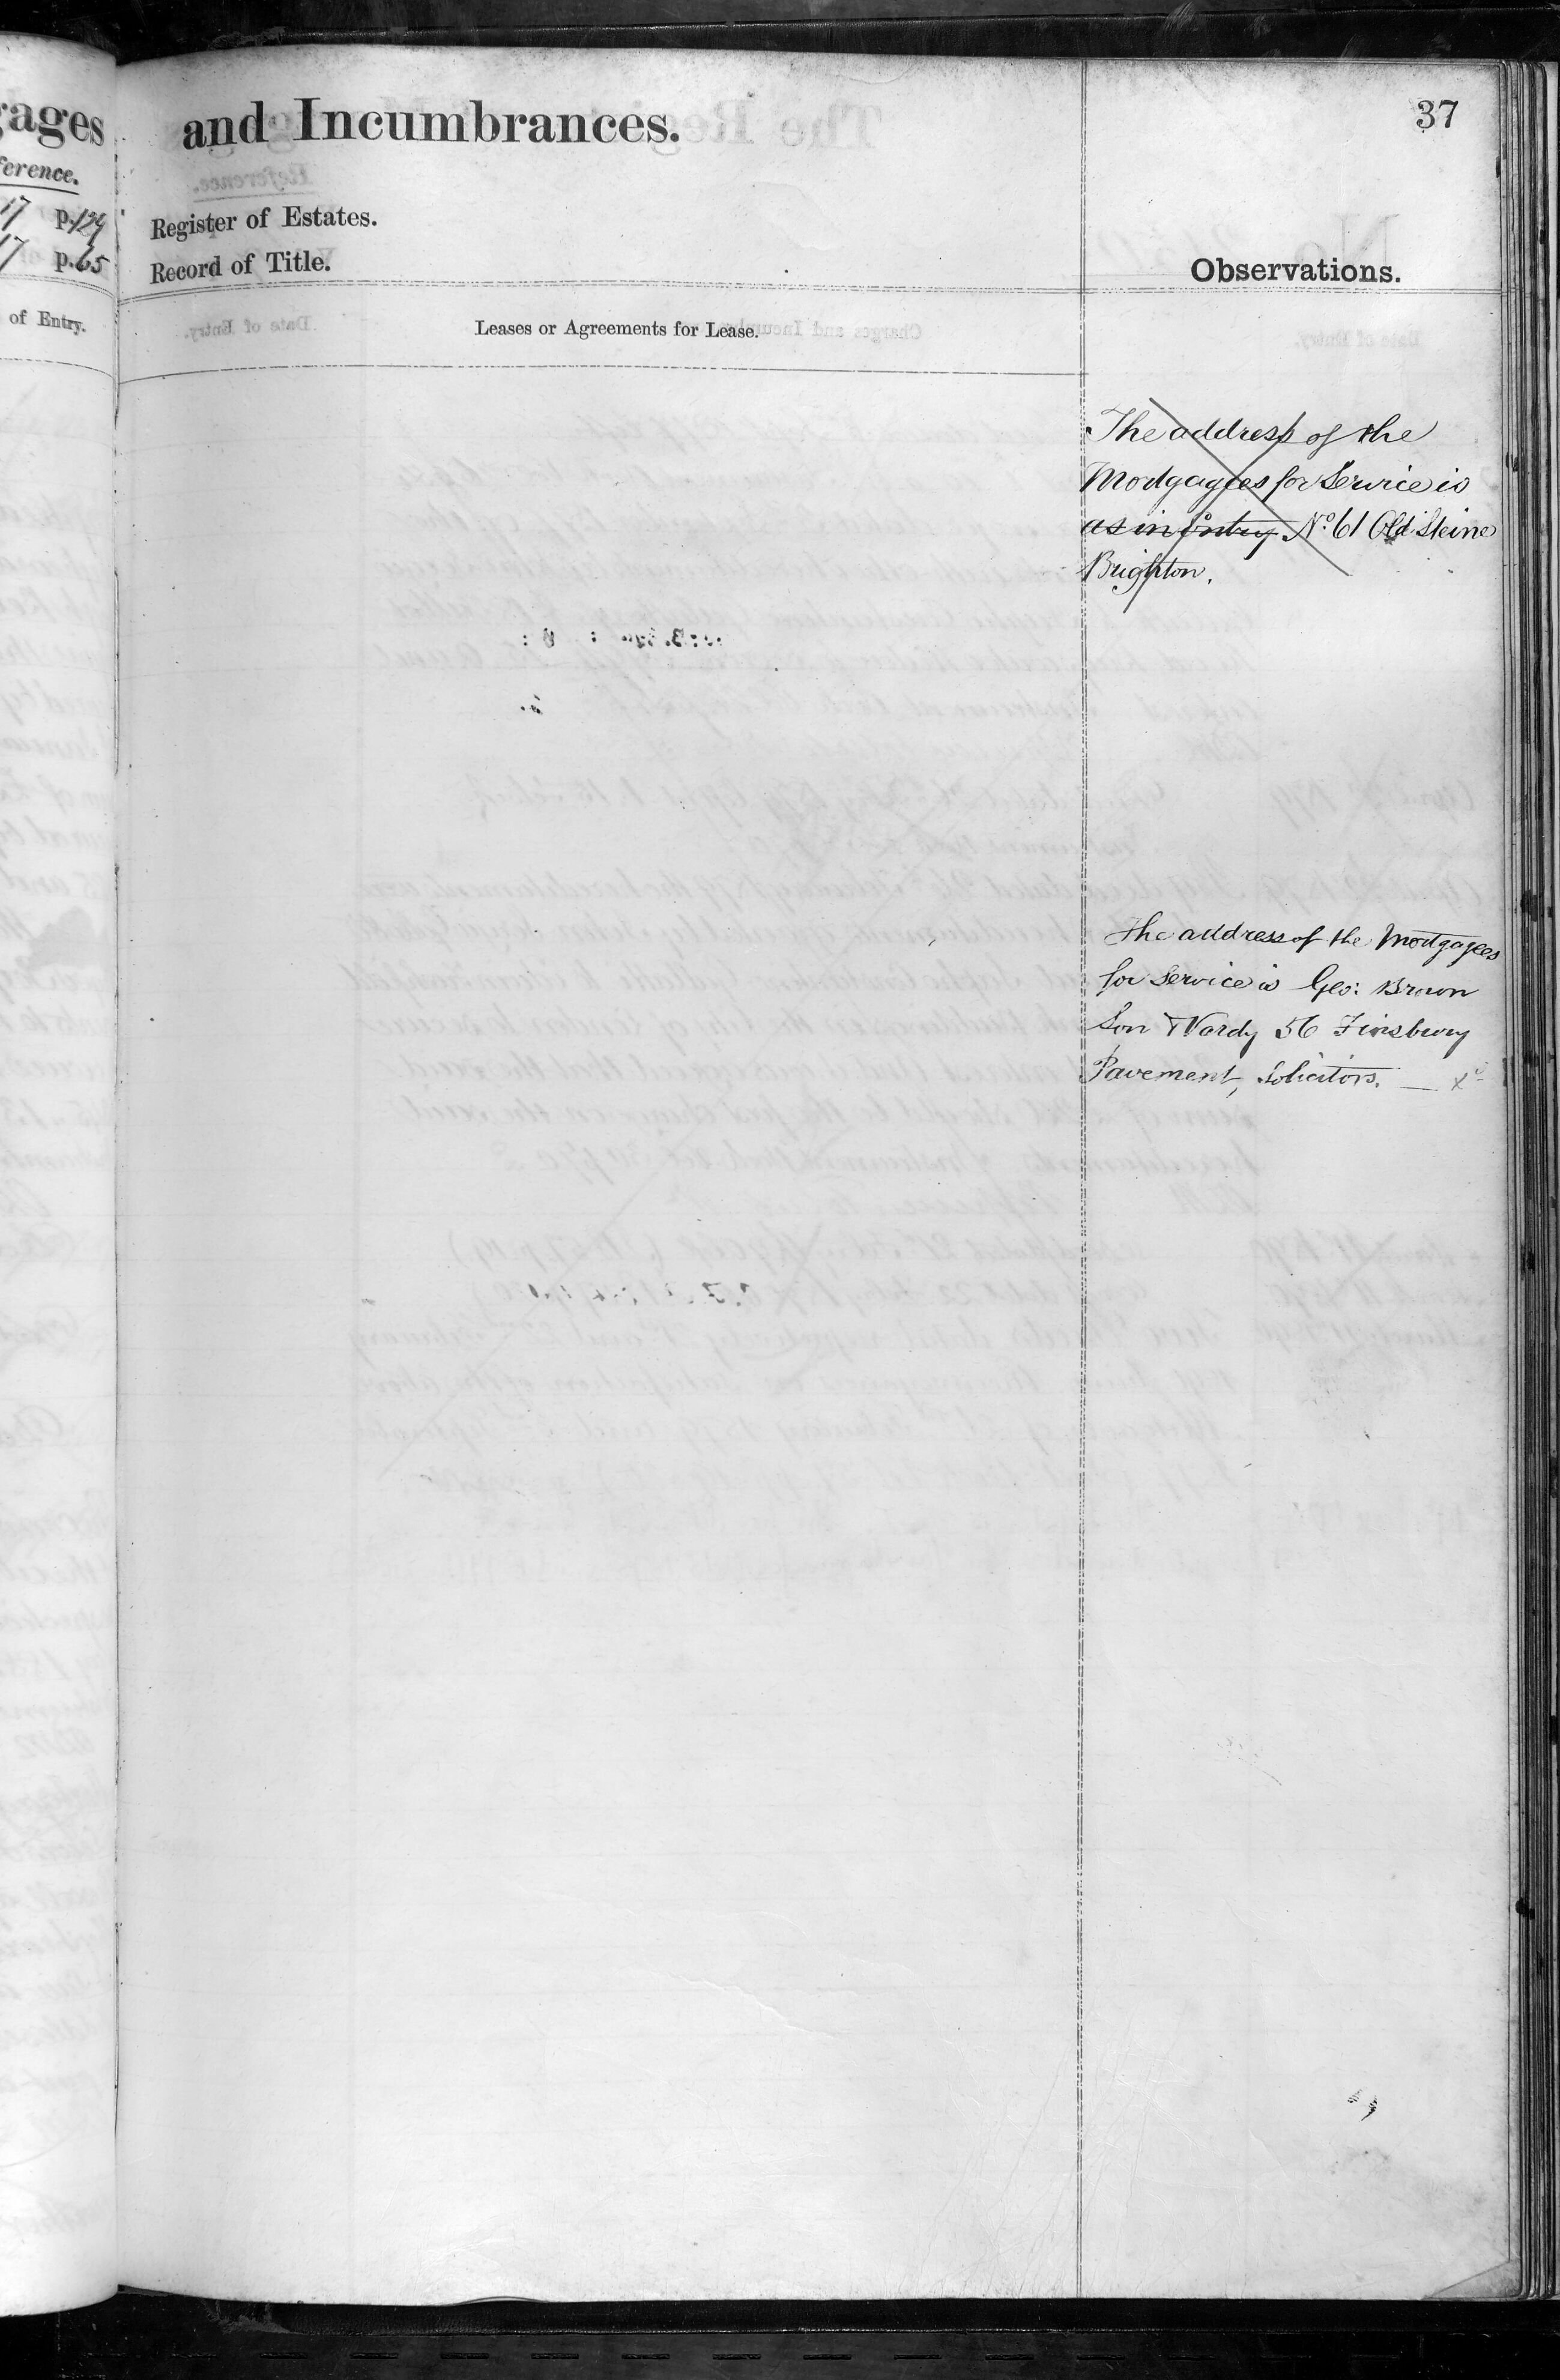 gages
ference.
17 p. 124
17 p. 65
of Entry.
and Incumbrances.
37
Register of Estates.
Record of Title.
Observations.
Leases or Agreements for Lease.
The address of the
Mortgagees for Service is
as in Entry No. 61 Old Steine
Brighton.
The address of the Mortgagees
for Service is Geo: Brown
Son & Vardy 56 Finsbury
Pavement, Solicitors.